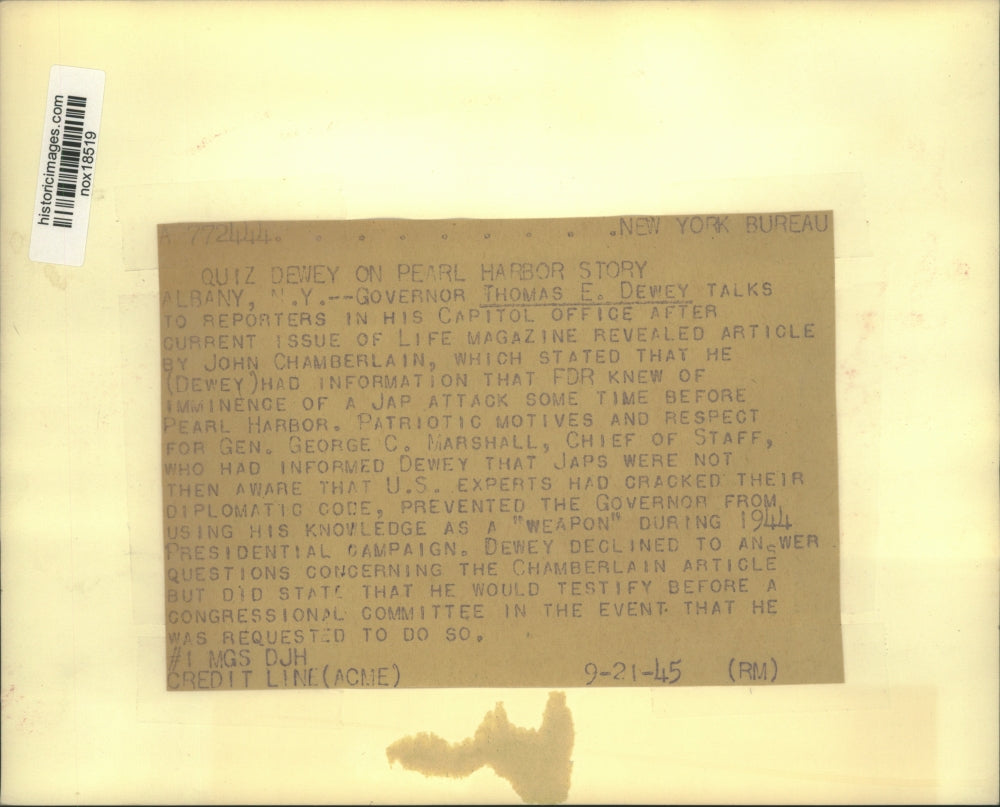 historicimages.com
nox18519
A 772444. . . . . . . . .NEW YORK BUREAU
QUIZ DEWEY ON PEARL HARBOR STORY
ALBANY, N.Y.--GOVERNOR THOMAS E. DEWEY TALKS
TO REPORTERS IN HIS CAPITOL OFFICE AFTER
CURRENT ISSUE OF LIFE MAGAZINE REVEALED ARTICLE
BY JOHN CHAMBERLAIN, WHICH STATED THAT HE
(DEWEY)HAD INFORMATION THAT FDR KNEW OF
IMMINENCE OF A JAP ATTACK SOME TIME BEFORE
PEARL HARBOR. PATRIOTIC MOTIVES AND RESPECT
FOR GEN. GEORGE C. MARSHALL, CHIEF OF STAFF,
WHO HAD INFORMED DEWEY THAT JAPS WERE NOT
THEN AWARE THAT U.S. EXPERTS HAD CRACKED THEIR
DIPLOMATIC CODE, PREVENTED THE GOVERNOR FROM
USING HIS KNOWLEDGE AS A "WEAPON" DURING 1944
PRESIDENTIAL CAMPAIGN. DEWEY DECLINED TO ANSWER
QUESTIONS CONCERNING THE CHAMBERLAIN ARTICLE
BUT DID STATE THAT HE WOULD TESTIFY BEFORE A
CONGRESSIONAL COMMITTEE IN THE EVENT THAT HE
WAS REQUESTED TO DO SO.
#1 MGS DJH
CREDIT LINE(ACME) 9-21-45 (RM)